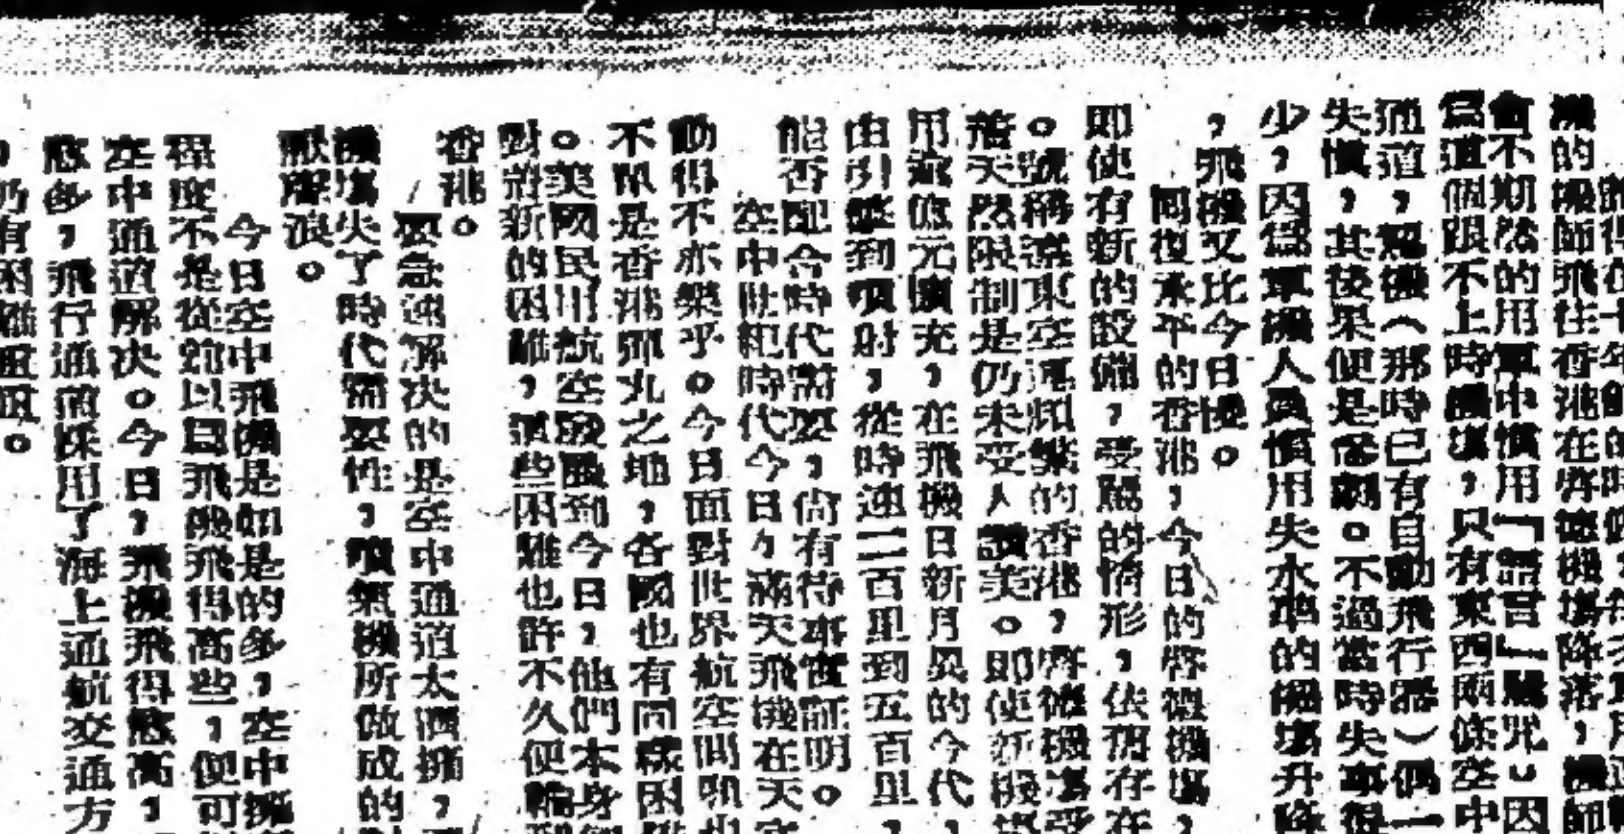 機的機師飛往香港在啓德機場降落，機師
會不期然的用軍中慣用「語言」罵咒。因
爲這個跟不上時機場，只有東西兩條空中
通道，駕機（那時已有自動飛行器）偶一
失慎，其後果便是慘劇。不過當時失事很
少，因爲軍機人員慣用失水準的機場升降
，飛機又比今日慢。
回復承平的香港，今日的啓德機場，
即使有新的設備，受駡的情形，依舊存在
。號稱遠東空運頻繁的香港，啓德機場受
着天然限制是仍未受人讚美。即使新機
用幾億元擴充，在飛機日新月異的今代，
由引擎到噴射，從時速二百里到五百里，
能否配合時代需要，尙有待事實証明。
空中世紀時代今日々滿天飛機在天
動得不亦樂乎。今日面對世界航空問
不單是香港彈丸之地，各國也有同樣困
。美國民用航空發展到今日，他們本身
對着新的困難，這些困難也許不久便輪
香港。
要急速解决的是空中通道太濟擁，
機場失了時代需要性，噴氣機所做成的
厭聲浪。
今日空中飛機是如是的多，空中擁
程度不是從前以爲飛機飛得高些，便可
空中通道解决。今日，飛機飛得愈高，
愈多，飛行通道採用了海上通航交通方
仍有困難